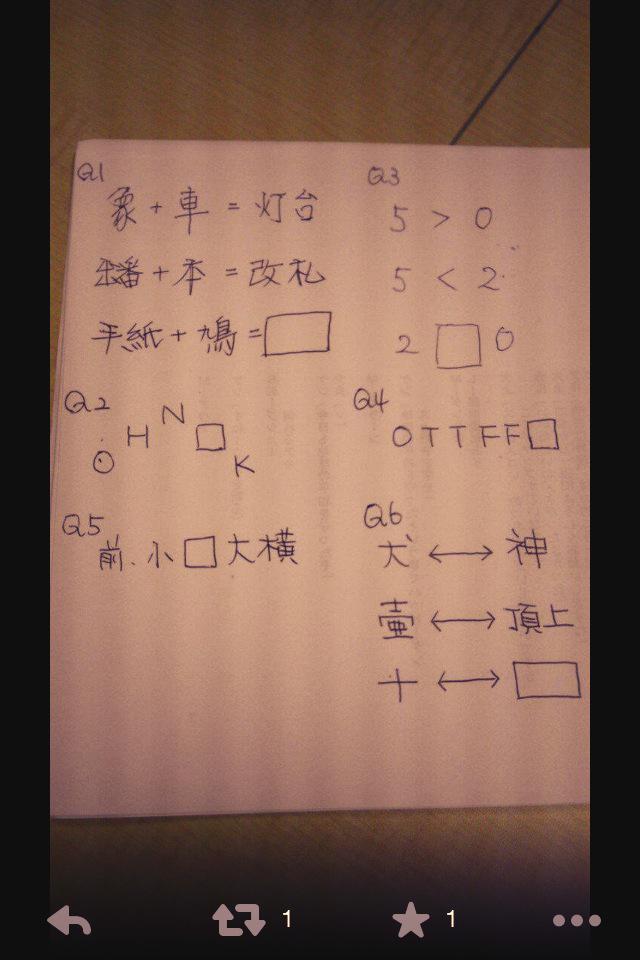 Q1
象 + 車 = 灯台
蟠 + 本 = 改札
手紙 + 鳩 = □
Q2
O H N □ K
Q5
前 小 □ 大 横
Q3
5 > 0
5 < 2
2 □ 0
Q4
O T T F F □
Q6
犬 ↔ 神
壷 ↔ 頂上
十 ↔ □
1
1